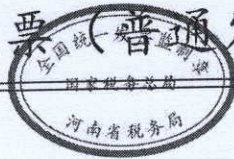 票（普通发
全国统一发票监制章
国家税务总局
河南省税务局